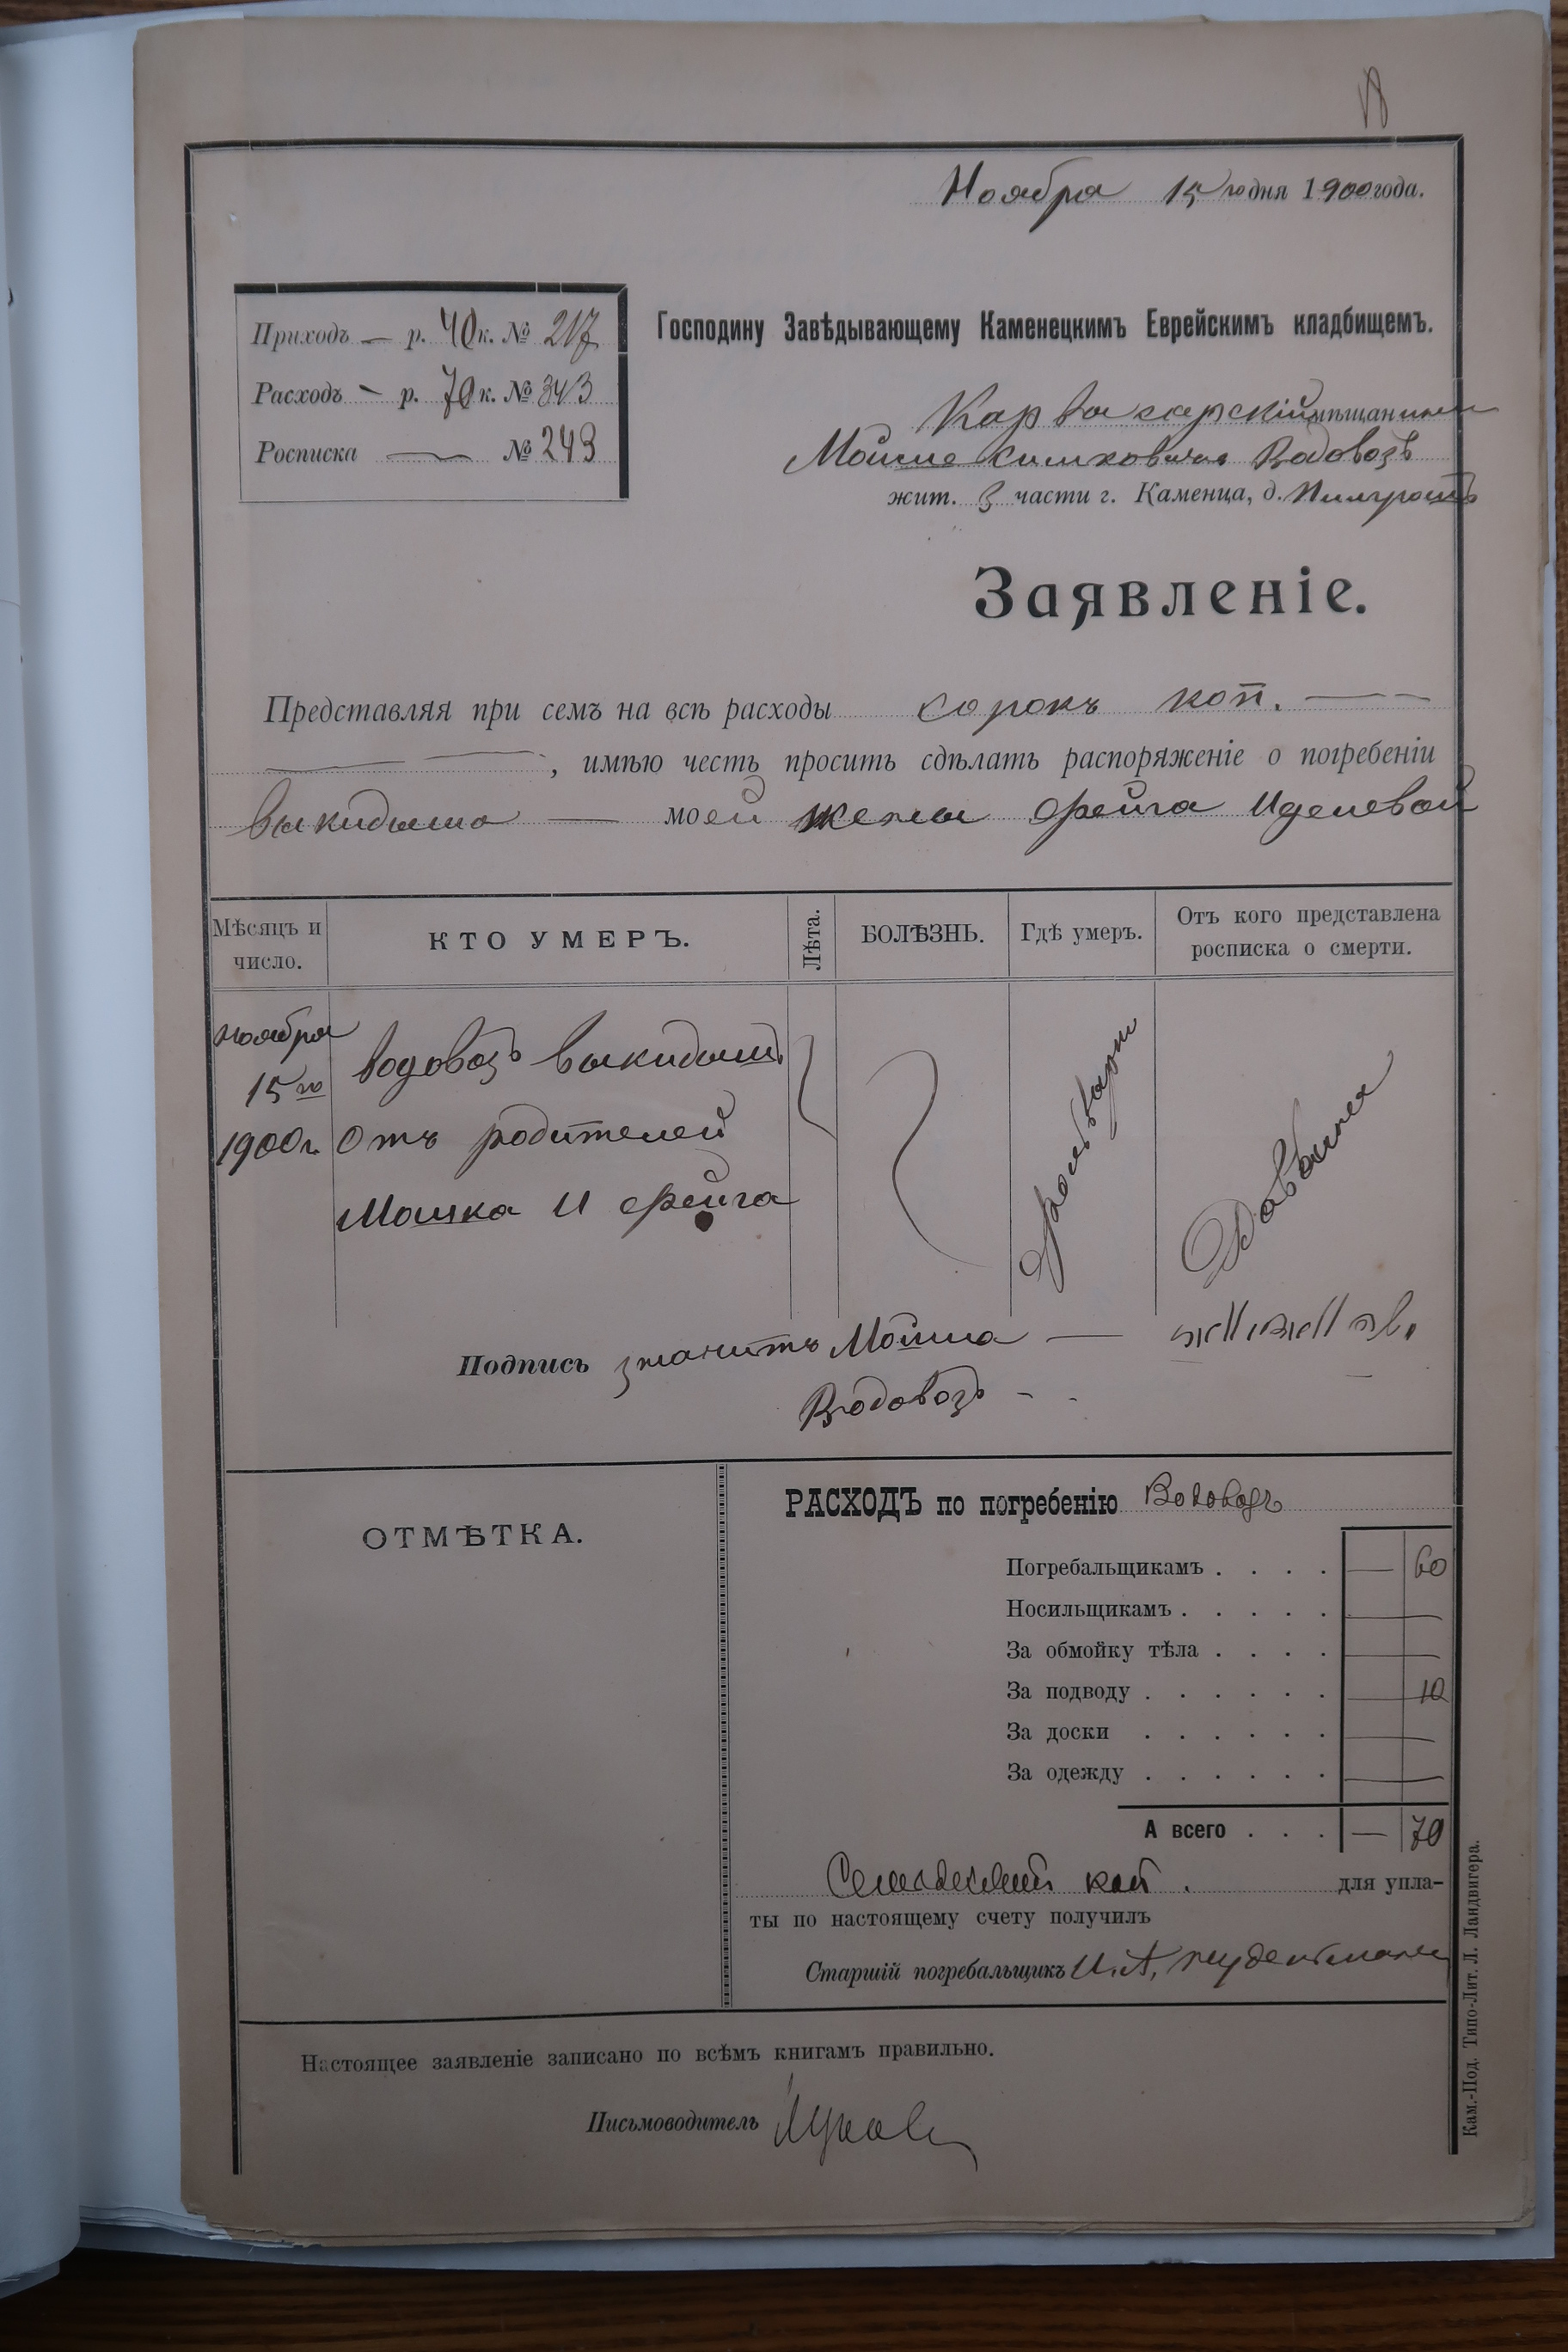 Ноября 15 го дня 1900 года.
Приходъ — р. 40 к. № 217
Расходъ — р. 70 к. № 343
Росписка — № 243
Господину Завѣдывающему Каменецкимъ Еврейскимъ кладбищемъ.
Карвасарскій мѣщанинъ
Мойше Водовозъ
жит. 3 части г. Каменца, д.
Заявленіе.
Представляя при семъ на всѣ расходы сорокъ коп. —
— , имѣю честь просить сдѣлать распоряженіе о погребеніи
выкидыша — моей жены Фейга Иделевой
Мѣсяцъ и число.
КТО УМЕРЪ.
Лѣта.
БОЛѢЗНЬ.
Гдѣ умеръ.
Отъ кого представлена росписка о смерти.
Ноября
15 го
1900 г.
Водовозъ выкидыш
Отъ родителей
Мошка и Фейга
Подпись значитъ Мойша —
Водовозъ - -
ОТМѢТКА.
РАСХОДЪ по погребенію Водовозъ
Погребальщикамъ . . . . — 60
Носильщикамъ . . . . . —
За обмойку тѣла . . . . —
За подводу . . . . . . — 10
За доски . . . . . . —
За одежду . . . . . . —
А всего . . . — 70
Семьдесятъ коп. для упла-
ты по настоящему счету получилъ
Старшій погребальщикъ И. А.
Настоящее заявленіе записано по всѣмъ книгамъ правильно.
Письмоводитель
Кам.-Под. Типо-Лит. Л. Ландвигера.